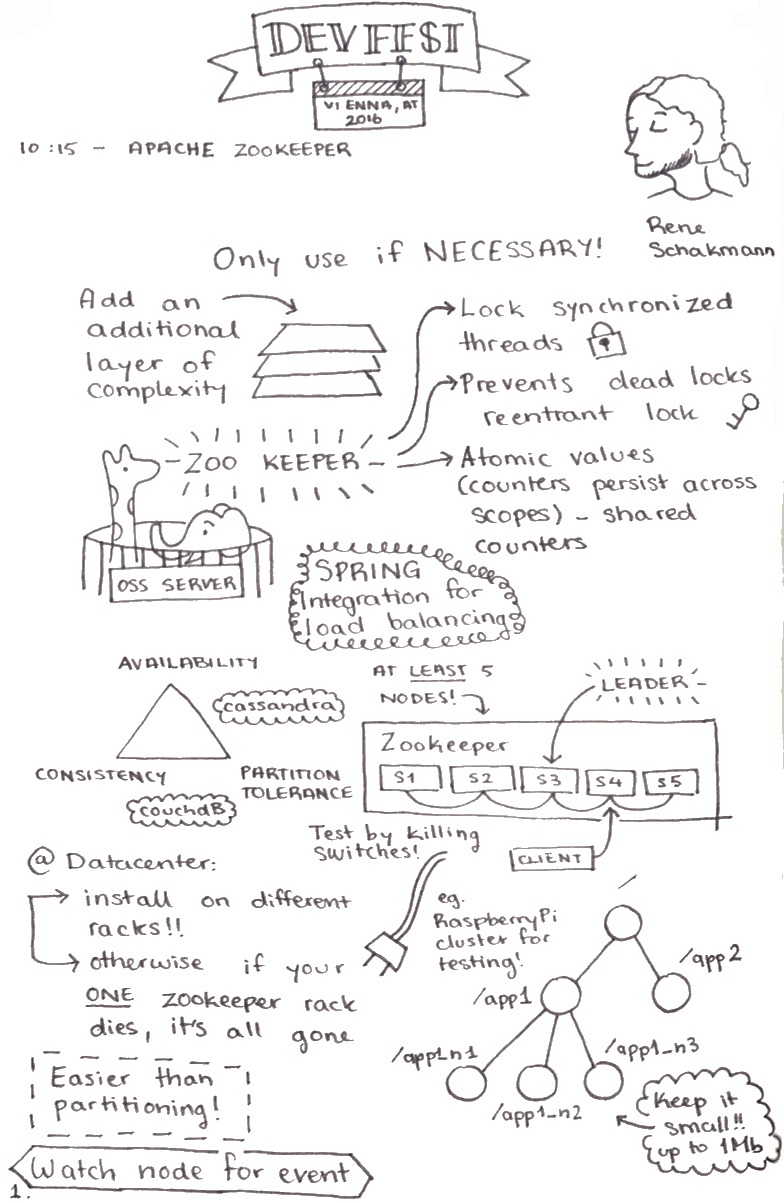 DEVFEST
VIENNA, AT
2016
10:15 - APACHE ZOOKEEPER
Rene
Schakmann
Only use if NECESSARY!
Add an
additional
layer of
complexity
Lock synchronized
threads
Prevents dead locks
reentrant lock
ZOO KEEPER
Atomic values
(counters persist across
scopes) - shared
counters
OSS SERVER
SPRING
Integration for
load balancing
AVAILABILITY
cassandra
CONSISTENCY
PARTITION
TOLERANCE
couchdB
AT LEAST 5
NODES!
LEADER
Zookeeper
S1 S2 S3 S4 S5
CLIENT
Test by killing
switches!
@ Datacenter:
install on different
racks!!
otherwise if your
ONE zookeeper rack
dies, it's all gone
eg.
RaspberryPi
cluster for
testing!
/
/app2
/app1
/app1n1
/app1_n3
/app1_n2
Keep it
small!!
up to 1Mb
Easier than
partitioning!
Watch node for event
1.